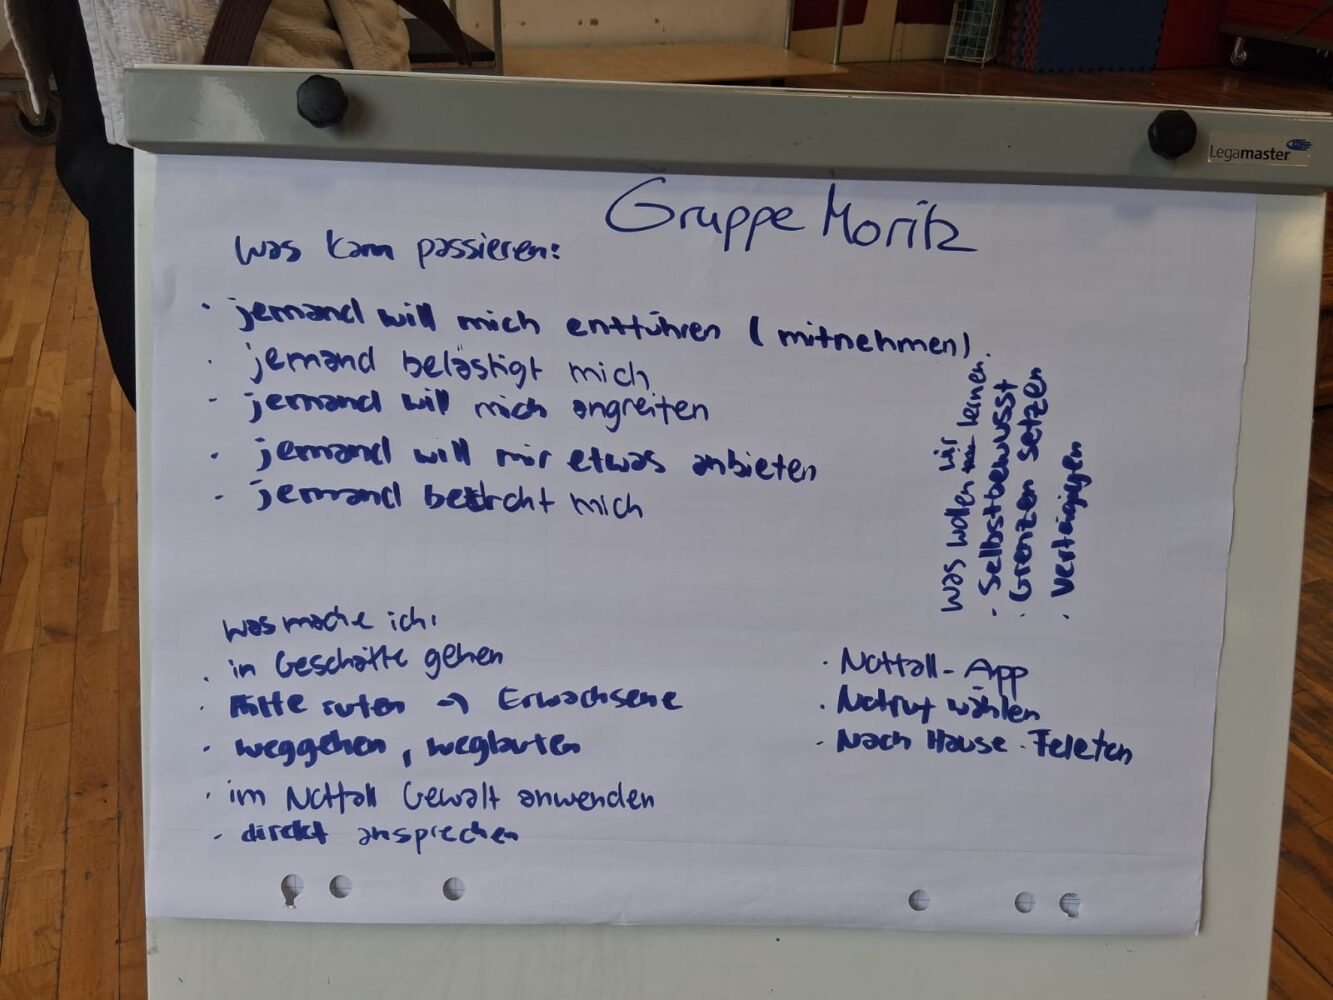 Legamaster
Gruppe Moritz
Was kann passieren:
· jemand will mich entführen (mitnehmen).
· jemand belästigt mich
- jemand will mich angreifen
· jemand will mir etwas anbieten
- jemand bedroht mich
was wollen wir lernen
· Selbstbewusst
· Grenzen setzen
· Verteigigen
was mache ich:
· in Geschäfte gehen
· Hilfe rufen → Erwachsene
· weggehen, weglaufen
· im Notfall Gewalt anwenden
· direkt ansprechen
· Notfall-App
· Notruf wählen
· Nach Hause